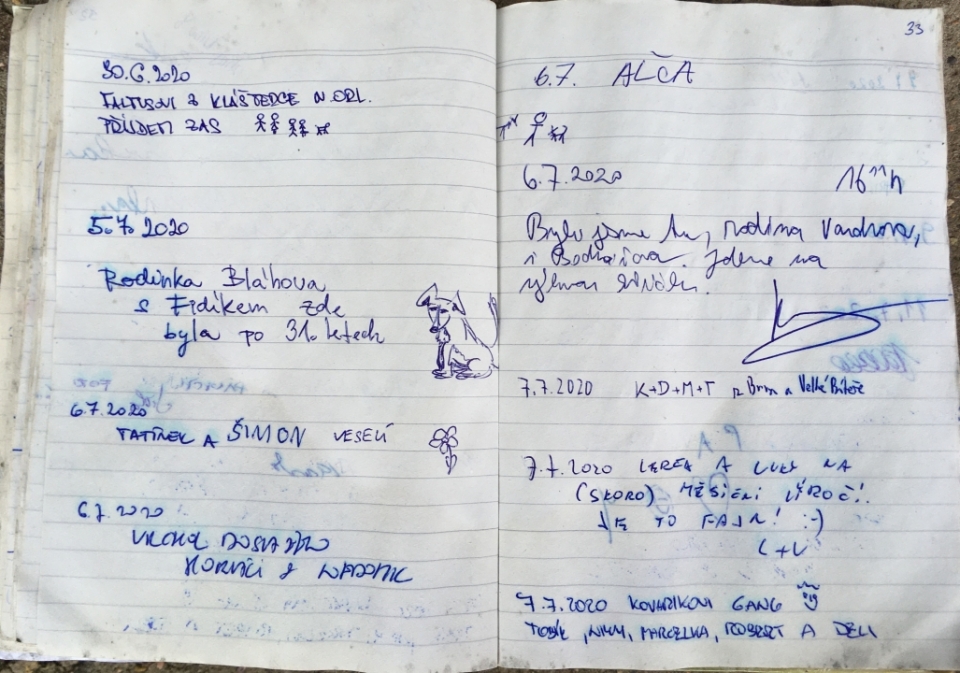 30.6.2020
FALTUSOVI Z KLÁŠTERCE N. ORL.
PŘÍJDEM ZAS
5.7.2020
Rodinka Bláhova
s Fidikem zde
byla po 31. letech
6.7.2020
TATÍNEK A ŠIMON VESELÍ
6.7.2020
VRCHOL
33
6.7. ALČA
6.7.2020 16¹¹h
Byli jsme tu, rodina
i Jdeme na
7.7.2020 K+D+M+T z Brna a Velké Bíteše
7.7.2020 A NA
(SKORO) MĚSÍČNÍ VÝROČÍ!
JE TO FAJN! :-)
L+V
7.7.2020 KOVAŘÍKOVI GANG
TOBÍK, NIKY, MARCELKA, ROBERT A